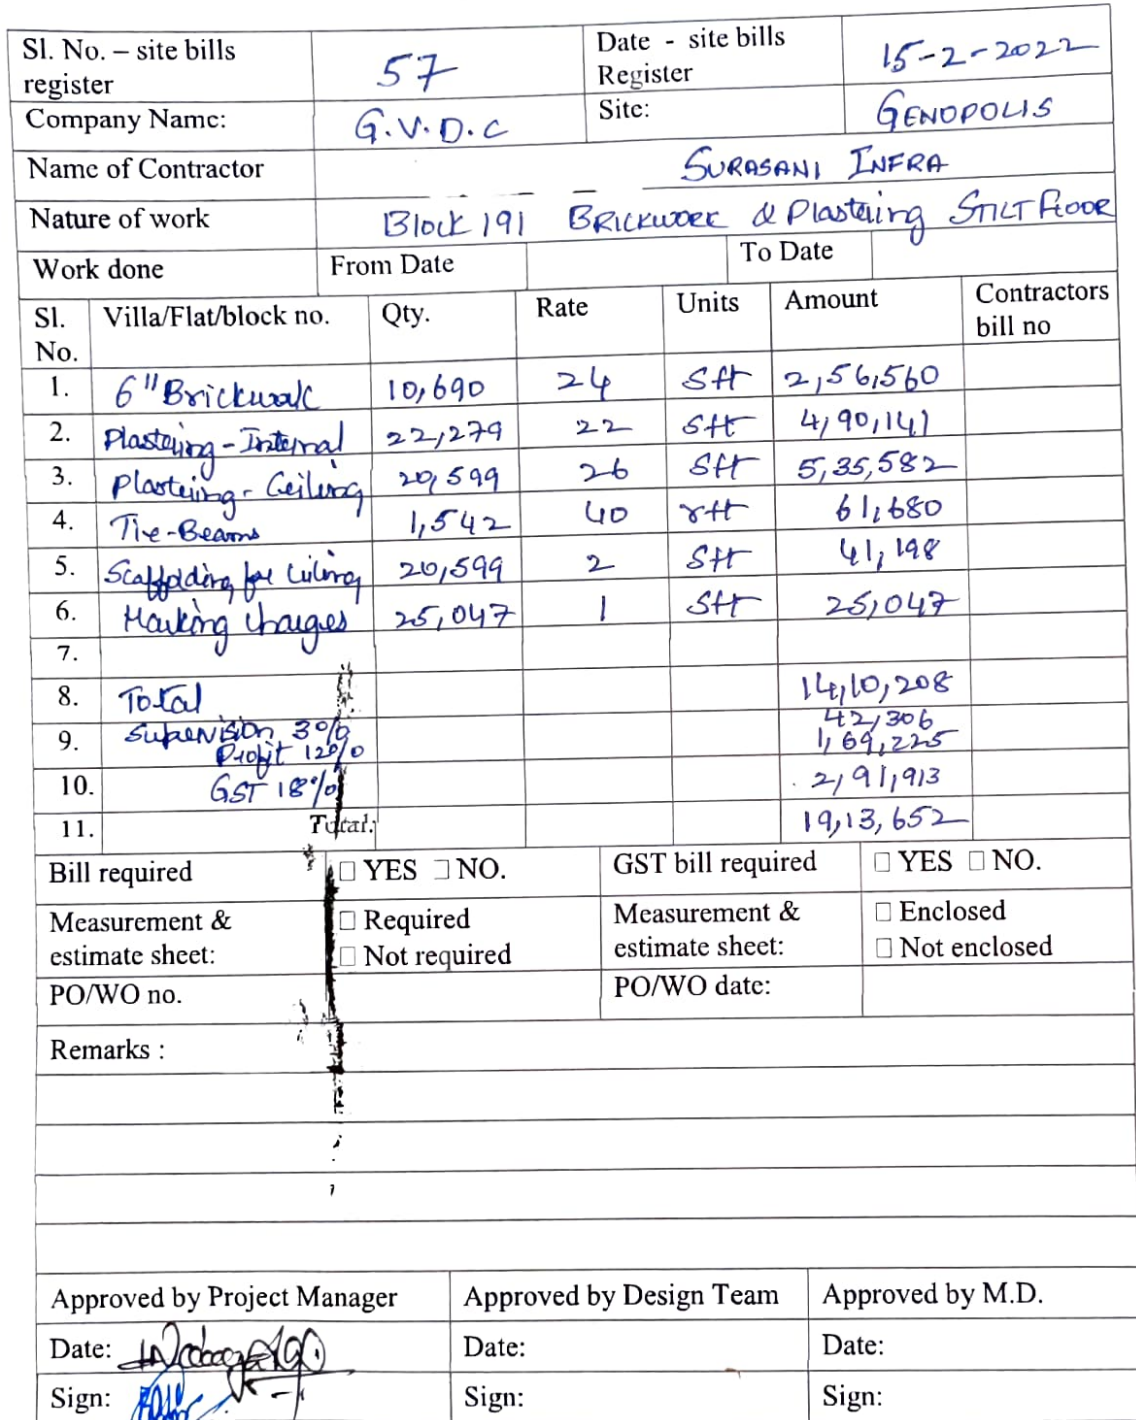 Sl. No. – site bills register 57 Date - site bills Register 15-2-2022
Company Name: G.V.D.C Site: GENOPOLIS
Name of Contractor SURASANI INFRA
Nature of work Block 191 BRICKWORK & Plastering STILT FLOOR
Work done From Date To Date
Sl. No. Villa/Flat/block no. Qty. Rate Units Amount Contractors bill no
1. 6" Brickwalk 10,690 24 Sft 2,56,560
2. Plastering - Internal 22,279 22 Sft 4,90,141
3. Plastering - Ceiling 20,599 26 Sft 5,35,582
4. Tie-Beams 1,542 40 rft 61,680
5. Scaffolding for Ceiling 20,599 2 Sft 41,198
6. Marking charges 25,047 1 Sft 25,047
7.
8. Total 14,10,208
9. Supervision 3% 42,306
Profit 12% 1,69,225
10. GST 18% 2,91,913
11. Total: 19,13,652
Bill required □ YES □ NO. GST bill required □ YES □ NO.
Measurement & estimate sheet: □ Required □ Not required Measurement & estimate sheet: □ Enclosed □ Not enclosed
PO/WO no. PO/WO date:
Remarks :
Approved by Project Manager Approved by Design Team Approved by M.D.
Date: Date: Date:
Sign: Sign: Sign: